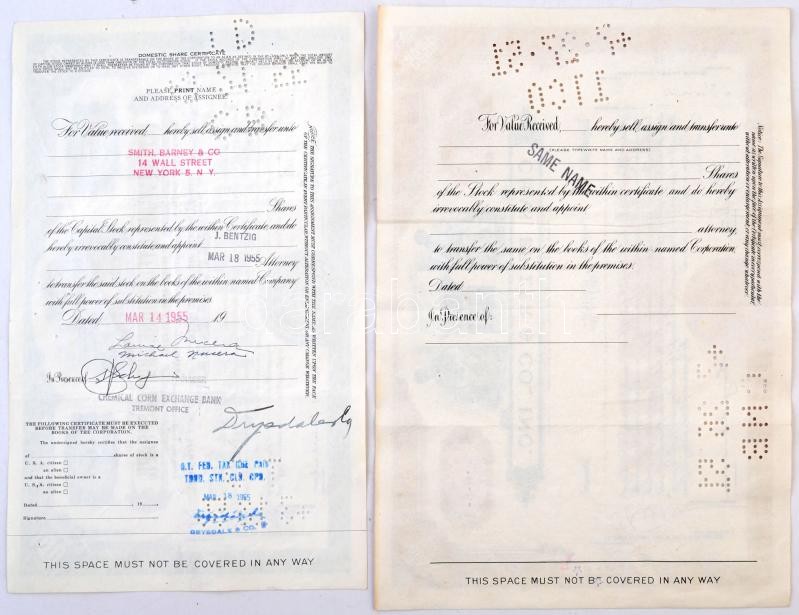 DOMESTIC SHARE CERTIFICATE
PLEASE PRINT NAME &
AND ADDRESS OF ASSIGNEE.
For Value received, hereby sell, assign and transfer unto
SMITH, BARNEY & CO
14 WALL STREET
NEW YORK 5, N. Y.
Shares
of the Capital Stock represented by the within Certificate, and do
hereby irrevocably constitute and appoint
J. BENTZIG
MAR 18 1955 Attorney
to transfer the said stock on the books of the within named Company
with full power of substitution in the premises.
Dated, MAR 14 1955 19
Louise Nucera
Michael Nucera
In Presence of
CHEMICAL CORN EXCHANGE BANK
TREMONT OFFICE
Drysdale & Co
THE FOLLOWING CERTIFICATE MUST BE EXECUTED
BEFORE TRANSFER MAY BE MADE ON THE
BOOKS OF THE CORPORATION.
The undersigned hereby certifies that the assignee
of shares of stock is a
U. S. A. citizen
an alien
and that the beneficial owner is a
U. S. A. citizen
an alien
Dated 19
Signature
MAR 18 1955
DRYSDALE & CO.
THIS SPACE MUST NOT BE COVERED IN ANY WAY
For Value Received, hereby sell, assign and transfer unto
(PLEASE TYPEWRITE NAME AND ADDRESS)
SAME NAME
Shares
of the Stock represented by the within certificate and do hereby
irrevocably constitute and appoint
attorney,
to transfer the same on the books of the within named Corporation,
with full power of substitution in the premises.
Dated
In Presence of:
Notice: The Signature to this Assignment must correspond with the
name as written upon the face of the Certificate in every particular,
without alteration or enlargement, or any change whatever.
THIS SPACE MUST NOT BE COVERED IN ANY WAY